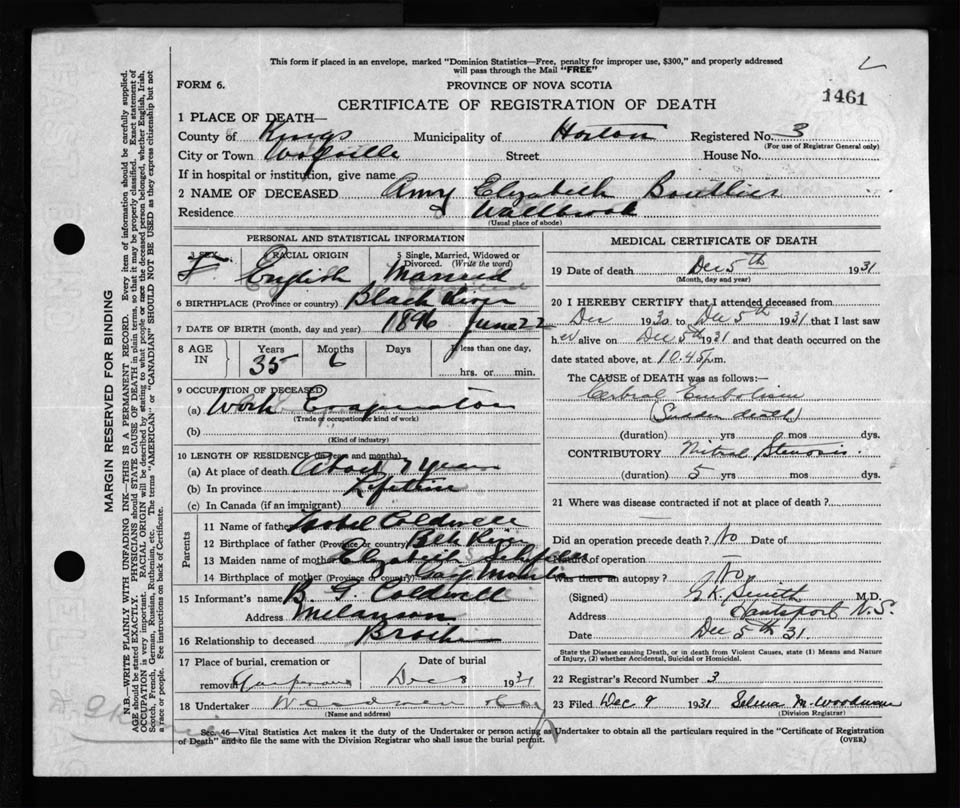 This form if placed in an envelope, marked "Dominion Statistics—Free, penalty for improper use, $300," and properly addressed
will pass through the Mail "FREE"
FORM 6.
PROVINCE OF NOVA SCOTIA
1461
CERTIFICATE OF REGISTRATION OF DEATH
1 PLACE OF DEATH—
County of Kings Municipality of Horton Registered No. 3
(For use of Registrar General only)
City or Town Wolfville Street House No.
If in hospital or institution, give name
2 NAME OF DECEASED Amy Elizabeth Boutlier
Residence Wallbrook
(Usual place of abode)
PERSONAL AND STATISTICAL INFORMATION
3 SEX F
4 RACIAL ORIGIN English
5 Single, Married, Widowed or Divorced. (Write the word) Married
6 BIRTHPLACE (Province or country) Black River
7 DATE OF BIRTH (month, day and year) 1896 June 22
8 AGE IN
Years 35
Months 6
Days
If less than one day,
hrs. or min.
9 OCCUPATION OF DECEASED
(a) Work Evaporator
(Trade of occupation or kind of work)
(b)
(Kind of industry)
10 LENGTH OF RESIDENCE (in years and months)
(a) At place of death About 7 years
(b) In province Lifetime
(c) In Canada (if an immigrant)
Parents
11 Name of father Caldwell
12 Birthplace of father (Province or country) Blk River
13 Maiden name of mother Elizabeth
14 Birthplace of mother (Province or country)
15 Informant's name B. G. Caldwell
Address Melanson
16 Relationship to deceased Brother
17 Place of burial, cremation or removal Gaspereau
Date of burial Dec 8 1931
18 Undertaker Woodman
(Name and address)
MEDICAL CERTIFICATE OF DEATH
19 Date of death Dec 5th 1931
(Month, day and year)
20 I HEREBY CERTIFY that I attended deceased from
Dec 1930 to Dec 5th 1931 that I last saw
her alive on Dec 5th 1931 and that death occurred on the
date stated above, at 10.45 p.m.
The CAUSE of DEATH was as follows:
Cerbral Embolism
(Sudden death)
(duration) yrs mos dys.
CONTRIBUTORY Mitral Stenosis.
(duration) 5 yrs mos dys.
21 Where was disease contracted if not at place of death?
Did an operation precede death? No Date of
Nature of operation
Was there an autopsy? No
(Signed) Smith M.D.
Address Hantsport N.S.
Date Dec 5th 31.
State the Disease causing Death, or in death from Violent Causes, state (1) Means and Nature
of Injury, (2) whether Accidental, Suicidal or Homicidal.
22 Registrar's Record Number 3
23 Filed Dec 9 1931 Selma M. Woodman
(Division Registrar)
Sec. 46—Vital Statistics Act makes it the duty of the Undertaker or person acting as Undertaker to obtain all the particulars required in the "Certificate of Registration
of Death" and to file the same with the Division Registrar who shall issue the burial permit.
(OVER)
MARGIN RESERVED FOR BINDING
N.B.—WRITE PLAINLY WITH UNFADING INK—THIS IS A PERMANENT RECORD. Every item of information should be carefully supplied.
AGE should be stated EXACTLY. PHYSICIANS should state CAUSE OF DEATH in plain terms, so that it may be properly classified. Exact statement of
OCCUPATION is very important. RACIAL ORIGIN will be described by stating to what people or race the deceased person belonged, whether English, Irish,
Scotch, French, German, Russian, Ruthenian, etc. The terms "AMERICAN" or "CANADIAN" SHOULD NOT BE USED as they express citizenship but not
a race or people. See instructions on back of Certificate.